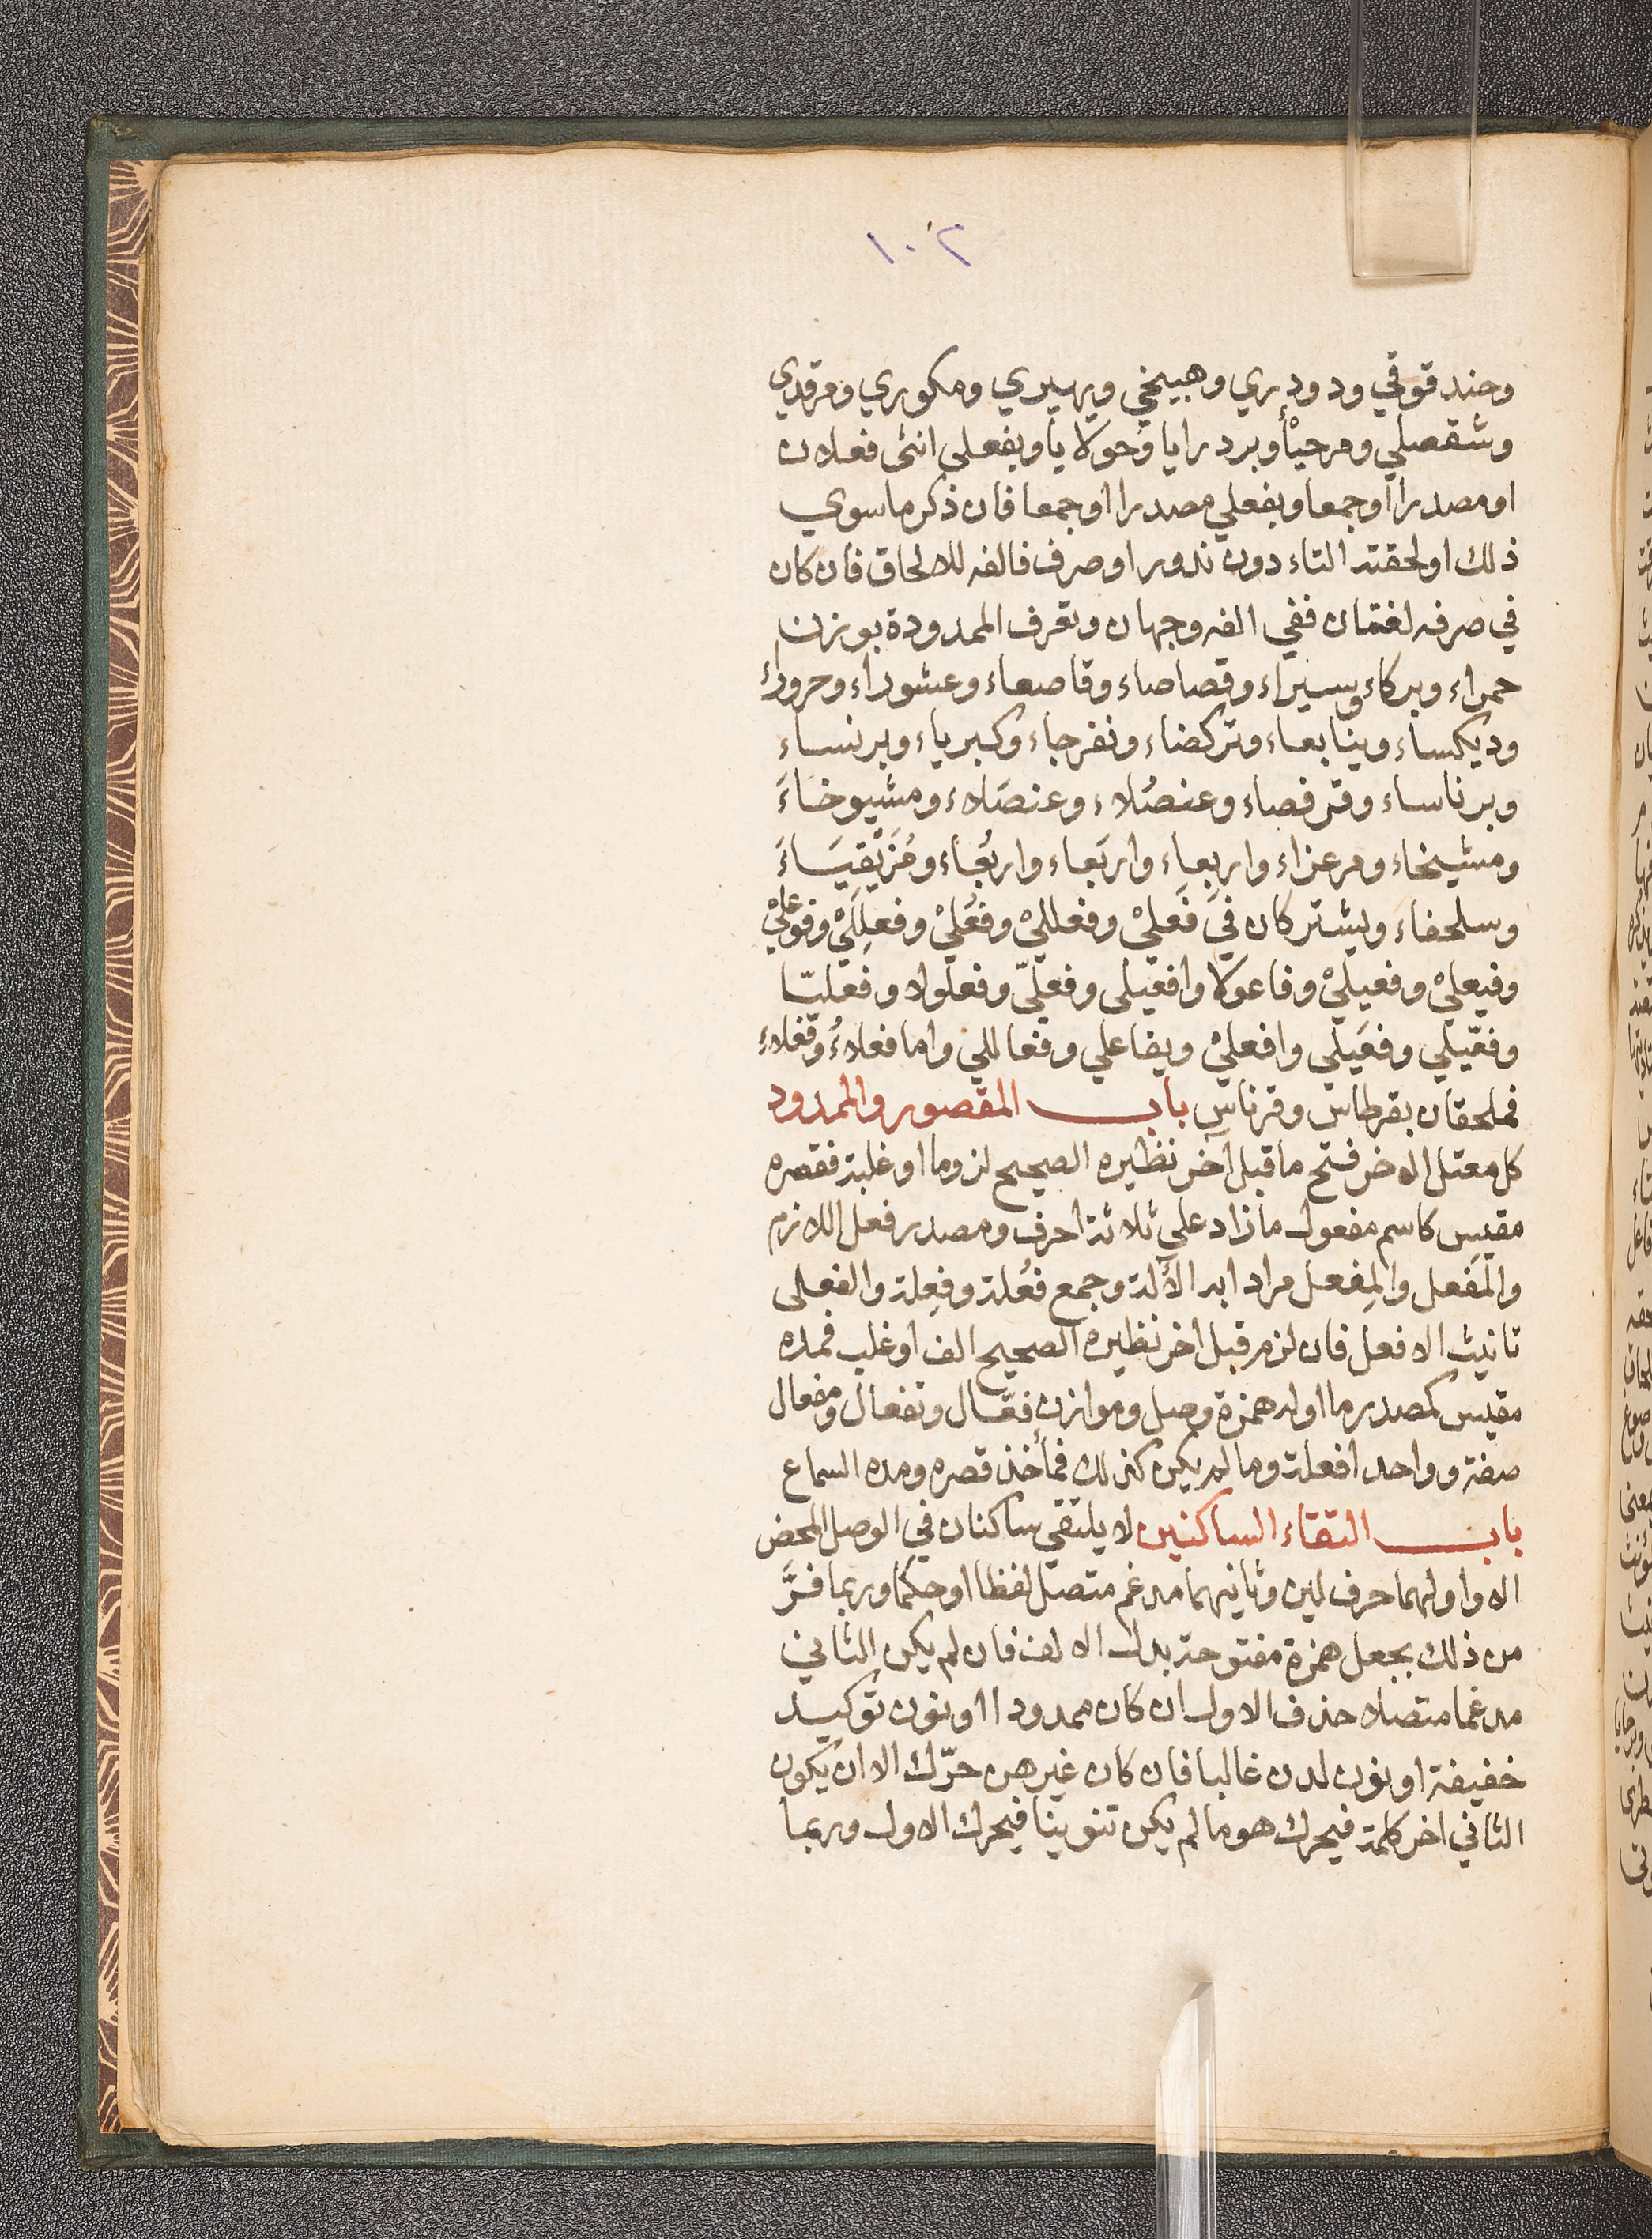 ١٠٢
وحندقوقي ودودري وهبيخي ويهيري ومكوري ومرقدي
وشفصلي ومرحيأ وبردرايا وحولايا وبفعلى انثى فعلان
او مصدرا او جمعا وبفعلي مصدرا او جمعا فان ذكر ما سوي
ذلك او لحقته التاء دون ندور او صرف فالفه للالحاق فان كان
في صرفه لغتان ففي الفه وجهان وتعرف الممدودة بوزن
حمراء وبركاء وسيراء وقصاصاء وقاصعاء وعشوراء وحروراء
وديكساء وينابعاء وتركضاء ونفرجاء وكبرياء وبرنساء
وبرناساء وقرفصاء وعنصُلاء وعنصَلاء ومشيوخاءَ
ومشيخاء ومرعزاء واربِعاء واربَعاء واربُعاء ومُزَيْقِيَاءَ
وسلحفاءَ ويشتركان في فَعَليْ وفعلليْ وفُعَليْ وفعِلِليْ وفوعليْ
وفيعليْ وفعيليْ وفاعولا وافعيلى وفعليّ وفعلولا وفعليّا
وفعّيلي وفعَيلي وافعليْ ويفاعلي وفعاللي واما فعلاءٌ وفعلاء
فملحقان بقرطاس وقرناس باب المقصور والممدود
كل معتل الاخر فتح ما قبل آخر نظيره الصحيح لزوما او غلبة فقصره
مقيس كاسم مفعول ما زاد علي ثلاثة احرف ومصدر فعل اللازم
والمَفعل والمِفعل مرادا به الألة وجمع فعُلة وفِعِلة والفعلى
تانيث الافعل فان لزم قبل اخر نظيره الصحيح الف او غلب فمده
مقيس كمصدر ما اوله همزة وصل وموازن فعّال وتفعال ومفعال
صفة وواحد افعلة وما لم يكن كذلك فمأخذ قصره ومده السماع
باب التقاء الساكنين لا يلتقي ساكنان في الوصل المحض
الا واولهما حرف لين وثانيهما مدغم متصل لفظا او حكما وربما فرَّ
من ذلك بجعل همزة مفتوحة بدل الالف فان لم يكن الثاني
مدغما متصلا حذف الاول ان كان ممدودا او نون توكيد
خفيفة او نون لدن غالبا فان كان غيرهن حرّك الا ان يكون
الثاني اخر كلمة فيحرك هو ما لم يكن تنوينا فيحرك الاول وربما